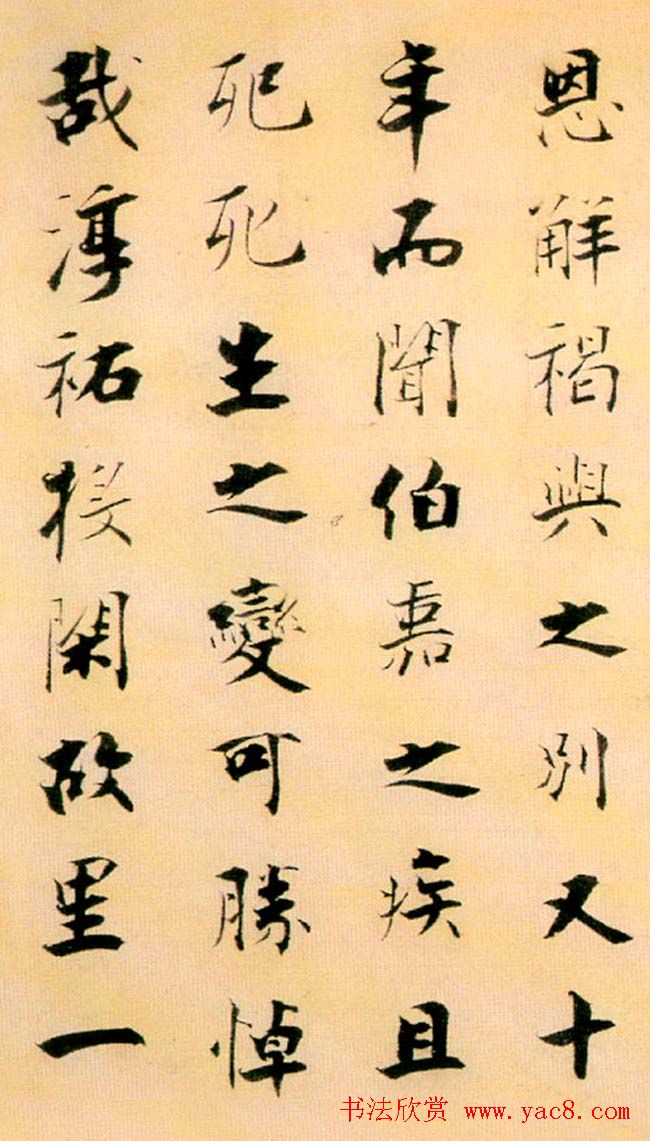 恩解褐與之別又十
年而聞伯嘉之疾且
死死生之變可勝悼
哉淳祐授閑故里一
书法欣赏 www.yac8.com